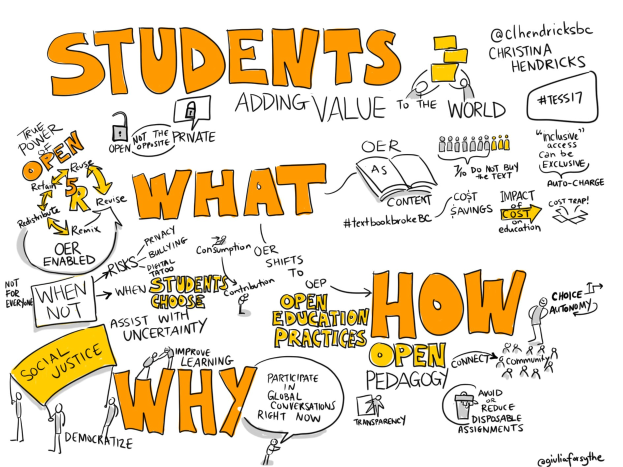 STUDENTS
ADDING VALUE TO THE WORLD
@clhendricksbc
CHRISTINA
HENDRICKS
#TESS17
OPEN NOT THE OPPOSITE PRIVATE
TRUE
POWER
OF
OPEN
5
R
Reuse
Revise
Remix
Redistribute
Retain
OER
ENABLED
WHAT
OER
AS
CONTENT
7/10 DO NOT BUY
THE TEXT
"inclusive"
access
can be
EXCLUSIVE
AUTO-CHARGE
#textbookbrokeBC
COST
SAVINGS
IMPACT
of
COST
on
education
COST TRAP!
NOT
FOR
EVERYONE
WHEN
NOT
RISKS
PRIVACY
BULLYING
DIGITAL
TATOO
WHEN STUDENTS
CHOOSE
ASSIST WITH
UNCERTAINTY
Consumption
Contribution
OER
SHIFTS
TO
OEP
OPEN
EDUCATION
PRACTICES
HOW
OPEN
PEDAGOGY
CHOICE
AUTONOMY
CONNECT
Community
TRANSPARENCY
AVOID
OR
REDUCE
DISPOSABLE
ASSIGNMENTS
SOCIAL
JUSTICE
DEMOCRATIZE
WHY
IMPROVE
LEARNING
PARTICIPATE
IN
GLOBAL
CONVERSATIONS
RIGHT NOW
@giuliaforsythe